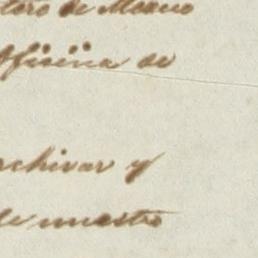 toro de Mexico
Oficina de
rchivar y
de nuestro